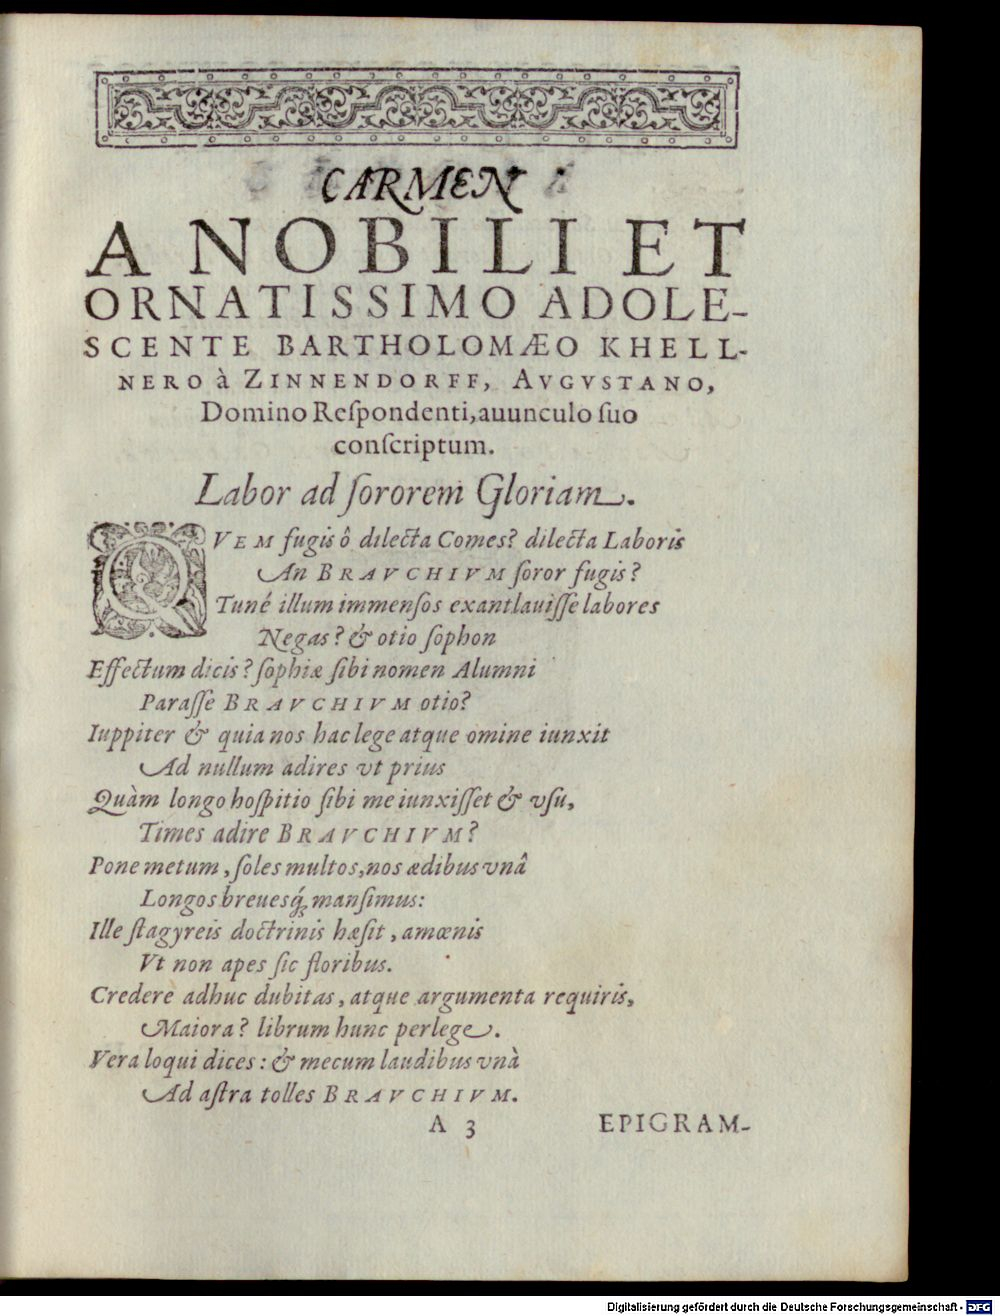 CARMEN
A NOBILI ET
ORNATISSIMO ADOLE-
SCENTE BARTHOLOMÆO KHELL-
NERO à ZINNENDORFF, AVGVSTANO,
Domino Reſpondenti, auunculo ſuo
conſcriptum.
Labor ad ſororem Gloriam.
QVEM fugis ô dilecta Comes? dilecta Laboris
An BRAVCHIVM ſoror fugis?
Tuné illum immenſos exantlauiſſe labores
Negas? & otio ſophon
Effectum dicis? ſophiæ ſibi nomen Alumni
Paraſſe BRAVCHIVM otio?
Iuppiter & quia nos hac lege atque omine iunxit
Ad nullum adires vt prius
Quàm longo hoſpitio ſibi me iunxiſſet & vſu,
Times adire BRAVCHIVM?
Pone metum, ſoles multos, nos ædibus vnâ
Longos breuesq́; manſimus:
Ille ſtagyreis doctrinis hæſit, amœnis
Vt non apes ſic floribus.
Credere adhuc dubitas, atque argumenta requiris,
Maiora? librum hunc perlege.
Vera loqui dices: & mecum laudibus vnà
Ad aſtra tolles BRAVCHIVM.
A 3 EPIGRAM-
Digitalisierung gefördert durch die Deutsche Forschungsgemeinschaft - DFG